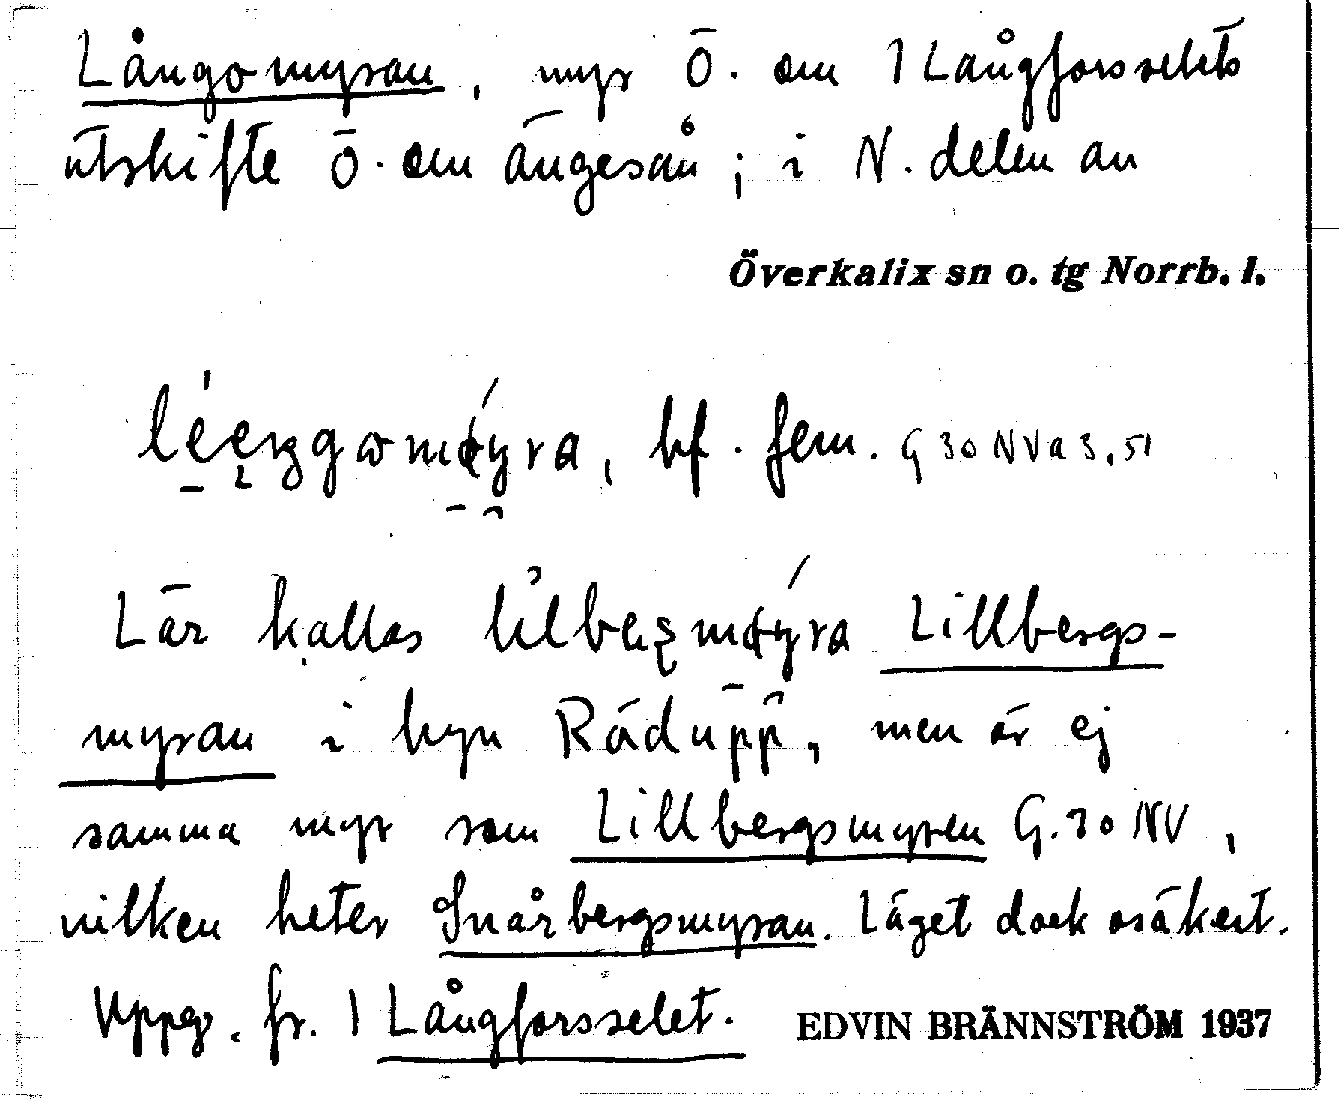 Långomyran, myr Ö. om 1 Långforsselets
utskifte Ö. om Ängesån; i N. delen av
Överkalix sn o. tg Norrb. l.
bf. fem. G 30 NV a 3, 51
Lär kallas Lillbergs-
myran i byn Rödupp, men är ej
samma myr som Lillbergsmyren G. 30 NV,
vilken heter Snårbergsmyran. Läget dock osäkert.
Uppg. fr. 1 Långforsselet.
EDVIN BRÄNNSTRÖM 1937